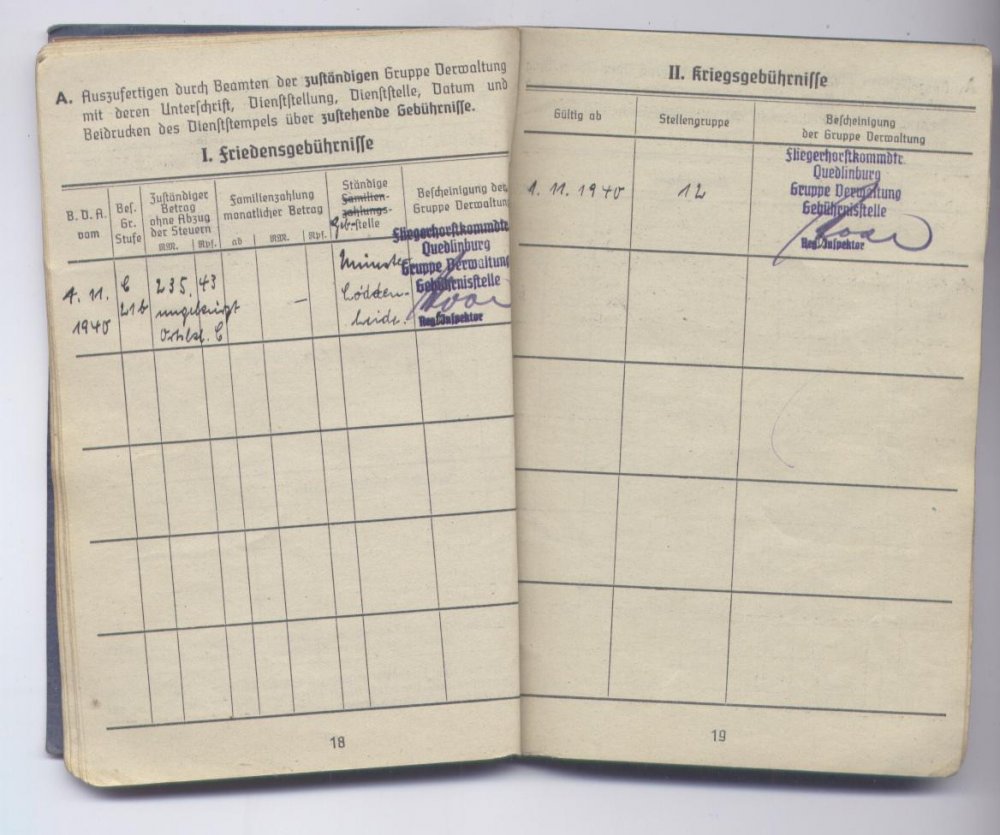 A. Auszufertigen durch Beamten der zuständigen Gruppe Verwaltung
mit deren Unterschrift, Dienststellung, Dienststelle, Datum und
Beidrucken des Dienststempels über zustehende Gebührnisse.
I. Friedensgebührnisse
B. D. A.
vom
Bes.
Gr.
Stufe
Zuständiger
Betrag
ohne Abzug
der Steuern
RM. Rpf.
Familienzahlung
monatlicher Betrag
ab RM. Rpf.
Ständige
Familien-
zahlungs-
Geb.-stelle
Bescheinigung der
Gruppe Verwaltung
1. 11.
1940
C
21b
235,43
ungekürzt
Ortskl. C
—
Münster
Lodden-
heide.
Fliegerhorstkommdtr.
Quedlinburg
Gruppe Verwaltung
Gebührnisstelle
Reg. Inspektor
18
II. Kriegsgebührnisse
Gültig ab
Stellengruppe
Bescheinigung
der Gruppe Verwaltung
1. 11. 1940
12
Fliegerhorstkommdtr.
Quedlinburg
Gruppe Verwaltung
Gebührnisstelle
Reg. Inspektor
19